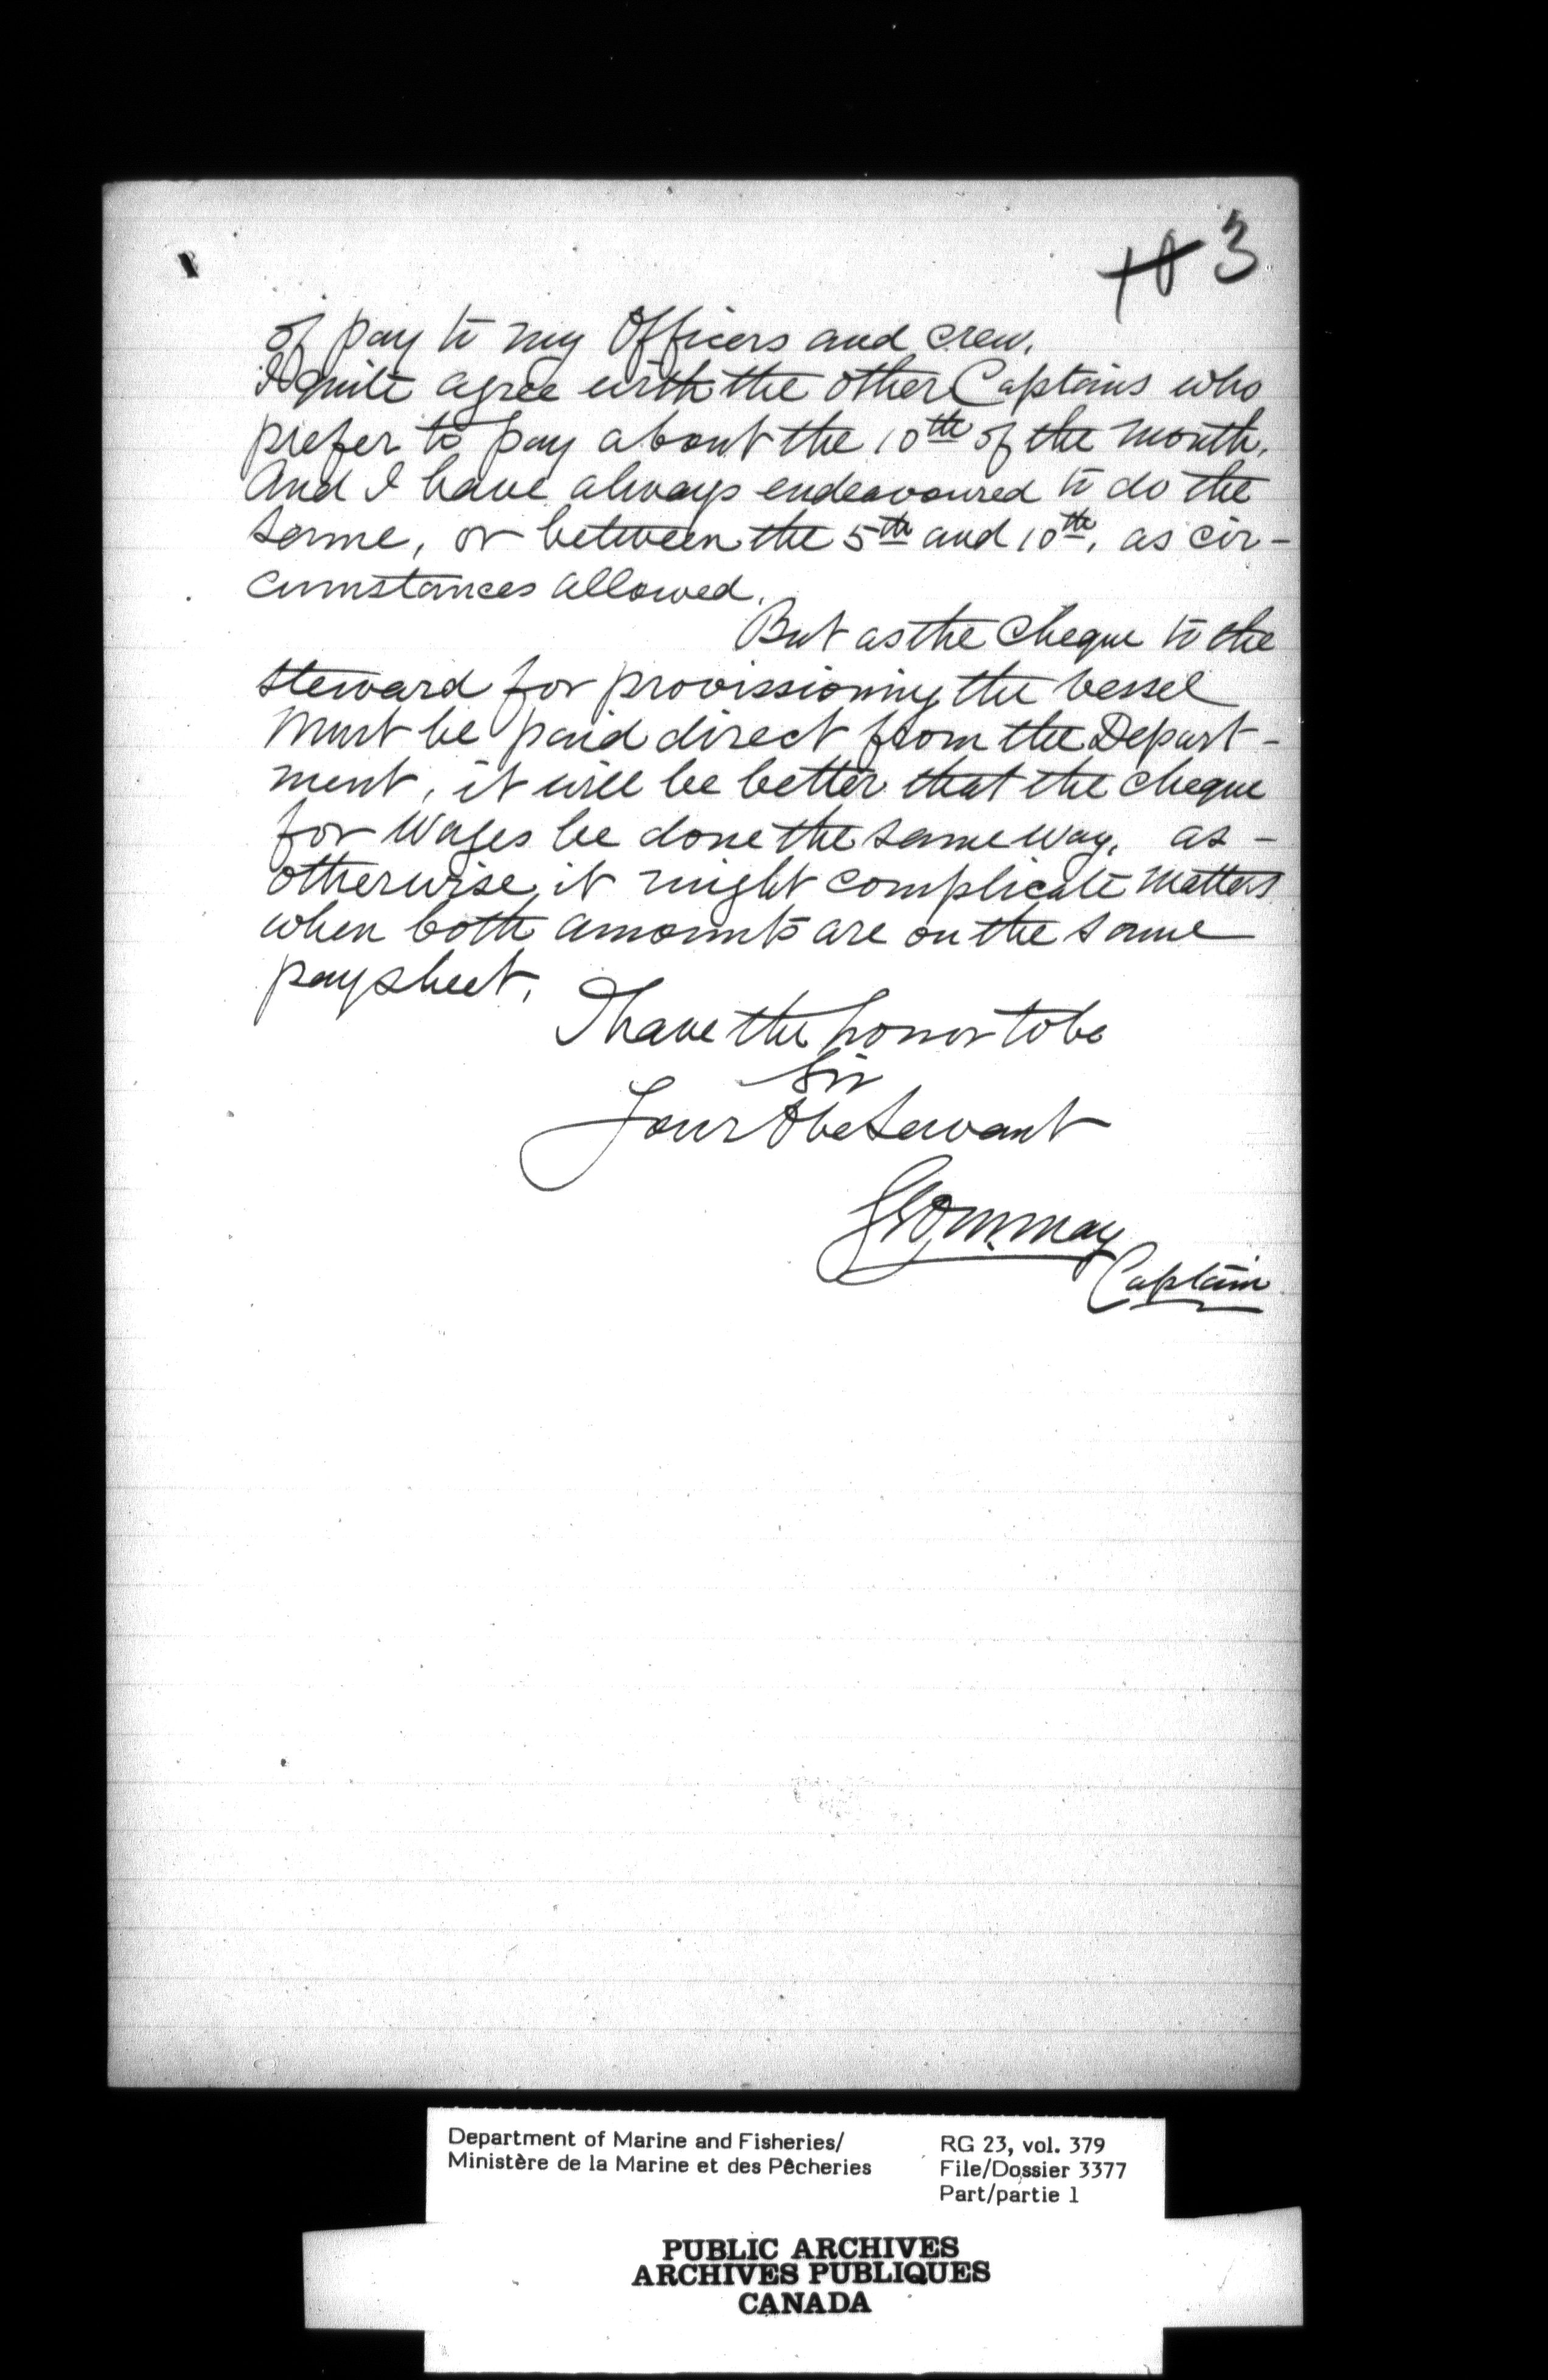 3
of pay to my Officers and crew.
I quite agree with the other Captains who
prefer to pay about the 10th of the month.
And I have always endeavoured to do the
same, or between the 5th and 10th, as cir-
cumstances allowed.
But as the cheque to the
steward for provissioning the vessel
must be paid direct from the Depart-
ment, it will be better that the cheque
for Wages be done the same way, as -
otherwise it might complicate matters
when both amounts are on the same
paysheet.
I have the honor to be
Sir
Your Obe Servant
Captain
Department of Marine and Fisheries/
Ministère de la Marine et des Pêcheries
RG 23, vol. 379
File/Dossier 3377
Part/partie 1
PUBLIC ARCHIVES
ARCHIVES PUBLIQUES
CANADA